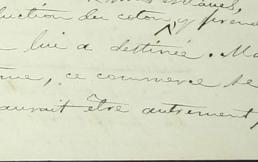 duction du coton, y prenne
lui a destinée. Ma
ce commerce se
aurait être autrement,